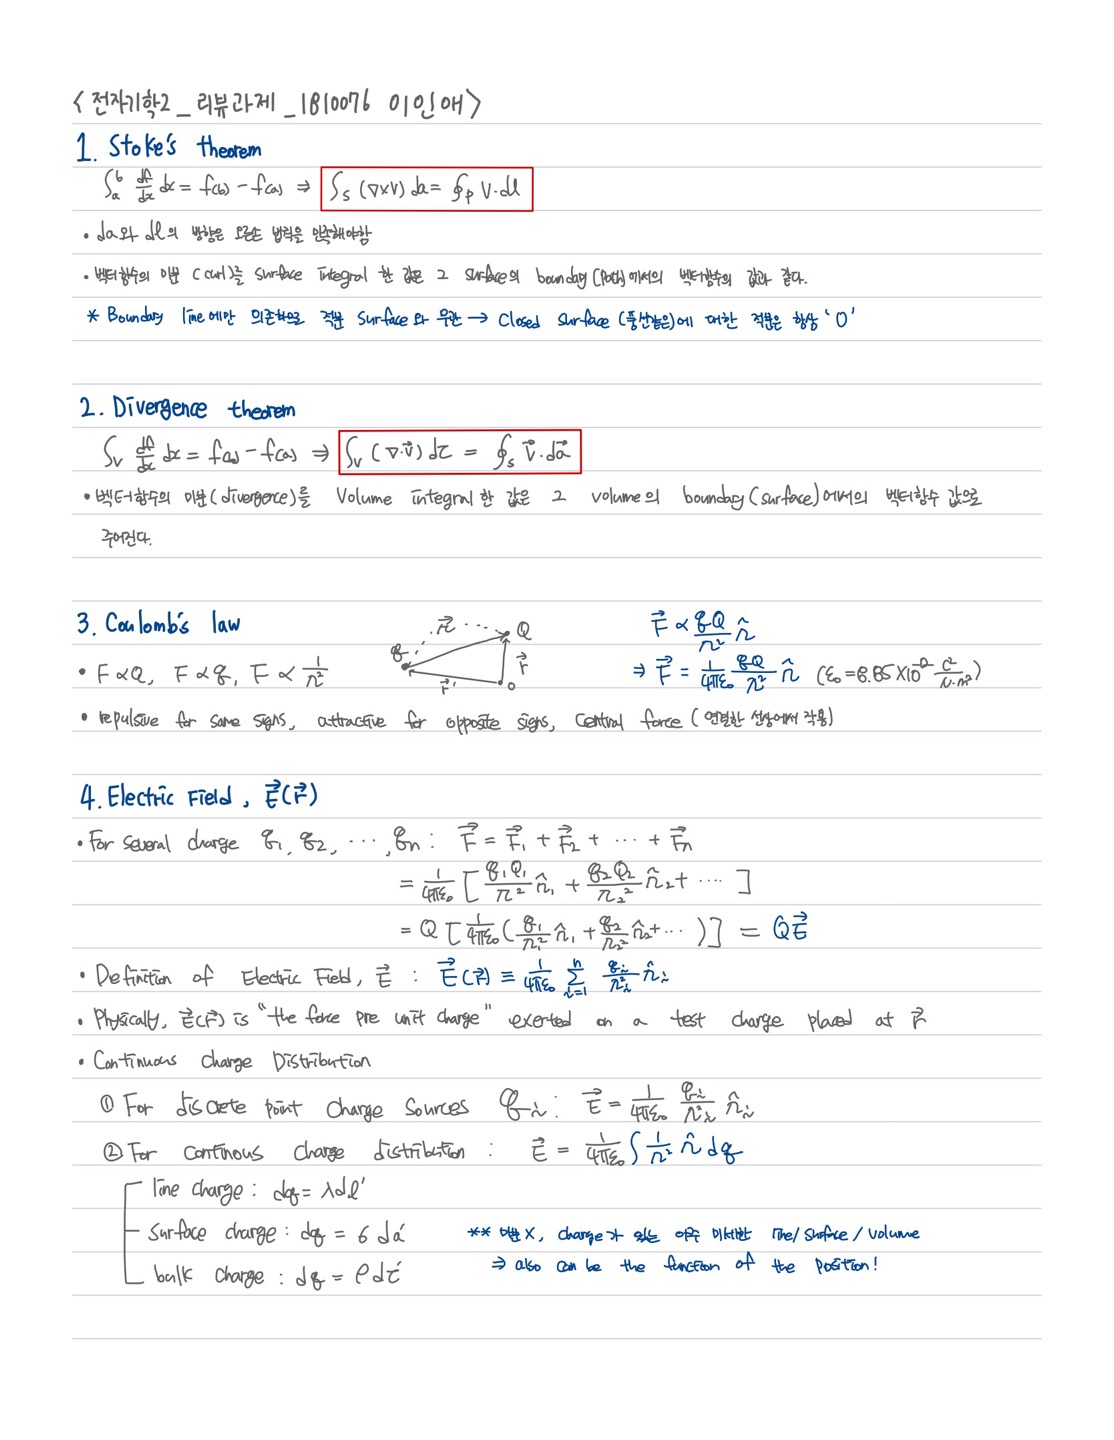 <전자기학2_리뷰과제_1810076 이인애>
1. Stoke's theorem
∫ₐᵇ df/dx dx = f(b) - f(a) ⇒ ∫ₛ (∇×V) da = ∮ₚ V·dl
• da와 dl의 방향은 오른손 법칙을 만족해야함
• 벡터함수의 미분(curl)을 surface integral 한 값은 그 surface의 boundary(path)에서의 벡터함수의 값과 같다.
* Boundary line에만 의존하므로 적분 surface와 무관 → closed surface (풍선같은)에 대한 적분은 항상 '0'
2. Divergence theorem
∫ᵥ df/dx dx = f(b) - f(a) ⇒ ∫ᵥ (∇·v⃗) dτ = ∮ₛ v⃗·da⃗
• 벡터함수의 미분(divergence)를 Volume integral 한 값은 그 volume의 boundary(surface)에서의 벡터함수 값으로
주어진다.
3. Coulomb's law
r⃗ q Q r⃗' r⃗ 0
F⃗ ∝ qQ/r² r̂
• F∝Q, F∝q, F∝ 1/r²
⇒ F⃗ = 1/4πε₀ qQ/r² r̂ (ε₀=8.85×10⁻¹² C²/N·m²)
• repulsive for same signs, attractive for opposite signs, central force (연결한 선상에서 작용)
4. Electric Field, E⃗(r⃗)
• For several charge q₁, q₂, ⋯, qn : F⃗ = F⃗₁ + F⃗₂ + ⋯ + F⃗n
= 1/4πε₀ [ q₁Q₁/r² r̂₁ + q₂Q₂/r₂² r̂₂ + ⋯ ]
= Q [ 1/4πε₀ ( q₁/r₁² r̂₁ + q₂/r₂² r̂₂ + ⋯ )] = QE⃗
• Definition of Electric Field, E⃗ : E⃗(r⃗) ≡ 1/4πε₀ Σ n i=1 qi/ri² r̂i
• Physically, E⃗(r⃗) is "the force pre unit charge" exerted on a test charge placed at r⃗
• Continuous Charge Distribution
① For discrete point charge sources qi : E⃗ = 1/4πε₀ qi/ri² r̂i
② For continous charge distribution : E⃗ = 1/4πε₀ ∫ 1/r² r̂ dq
line charge : dq = λdl'
surface charge : dq = σ da'
bulk charge : dq = ρdτ'
** 미분 X, charge가 있는 아주 미세한 line/surface/volume
⇒ also can be the function of the position!